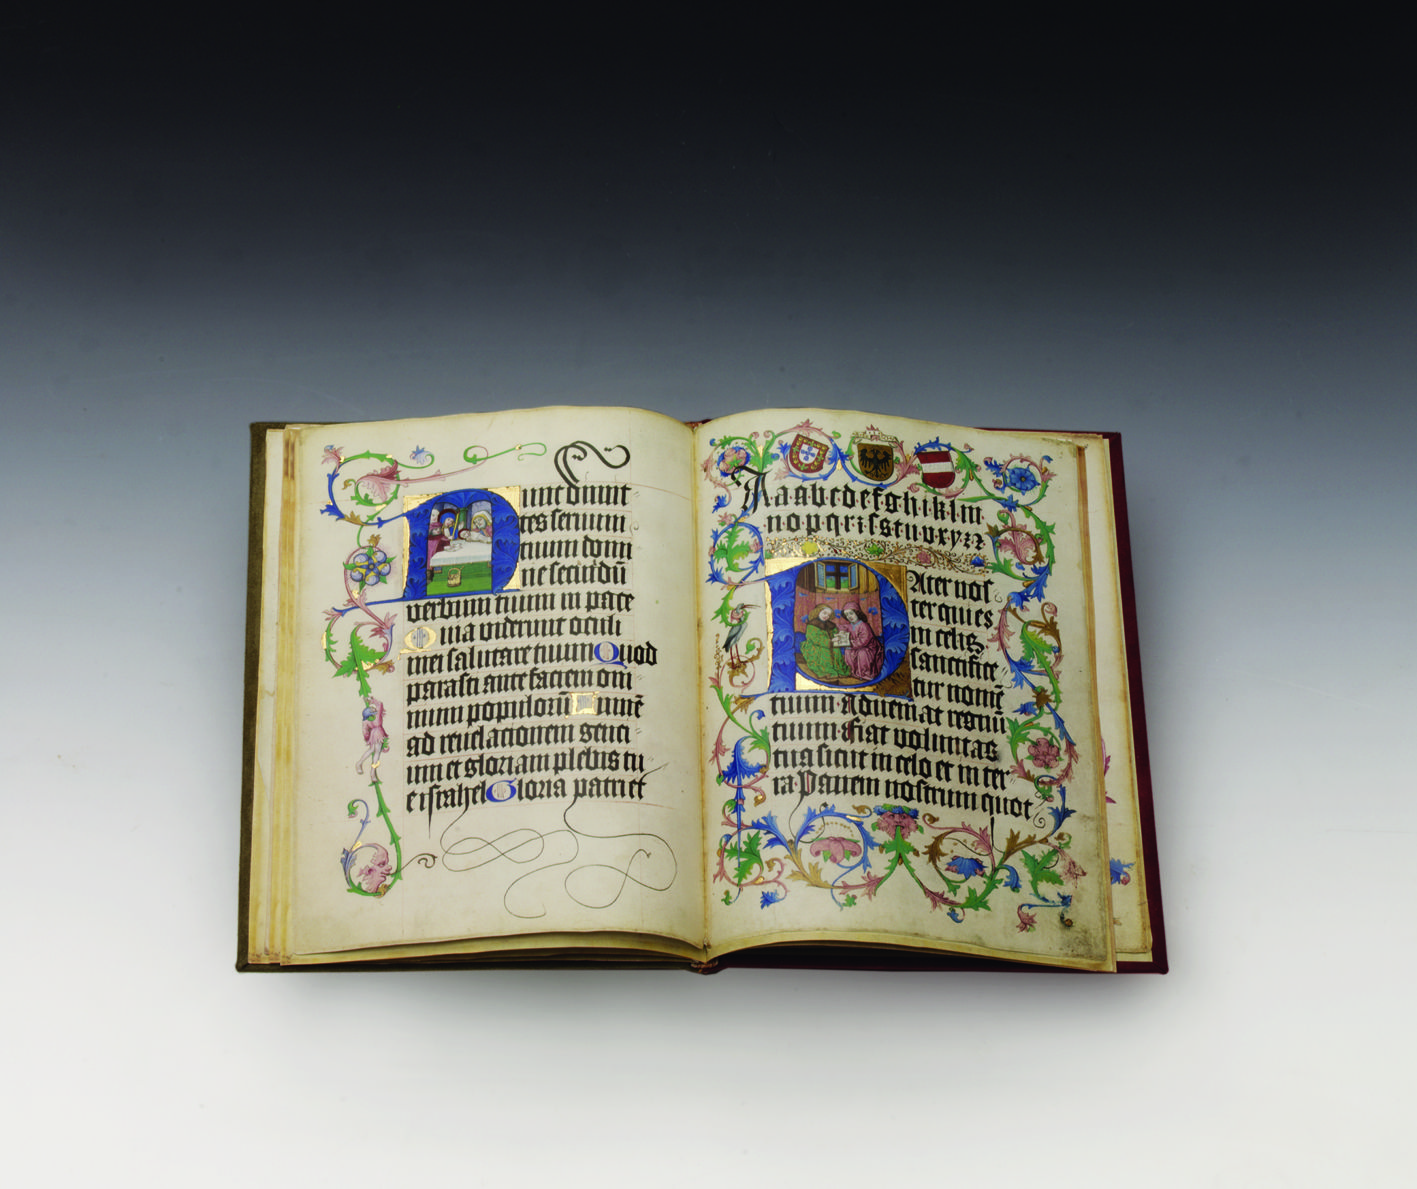 Nunc dimit
tes seruum
tuum dom̄
ne secūdū
verbum tuum in pace
Quia viderunt oculi
mei salutare tuum Quod
parasti ante faciem om
nium populorū Lumē
ad reuelationem genti
um et gloriam plebis tu
e israhel Gloria patri et
A a a b c d e f g h i k l m
n o p q r z s s t u v x y z
Pater nos
ter qui es
in celis
sanctifice
tur nomē
tuum adueniat regnū
tuum fiat voluntas
tua sicut in celo et in ter
ra Panem nostrum quot